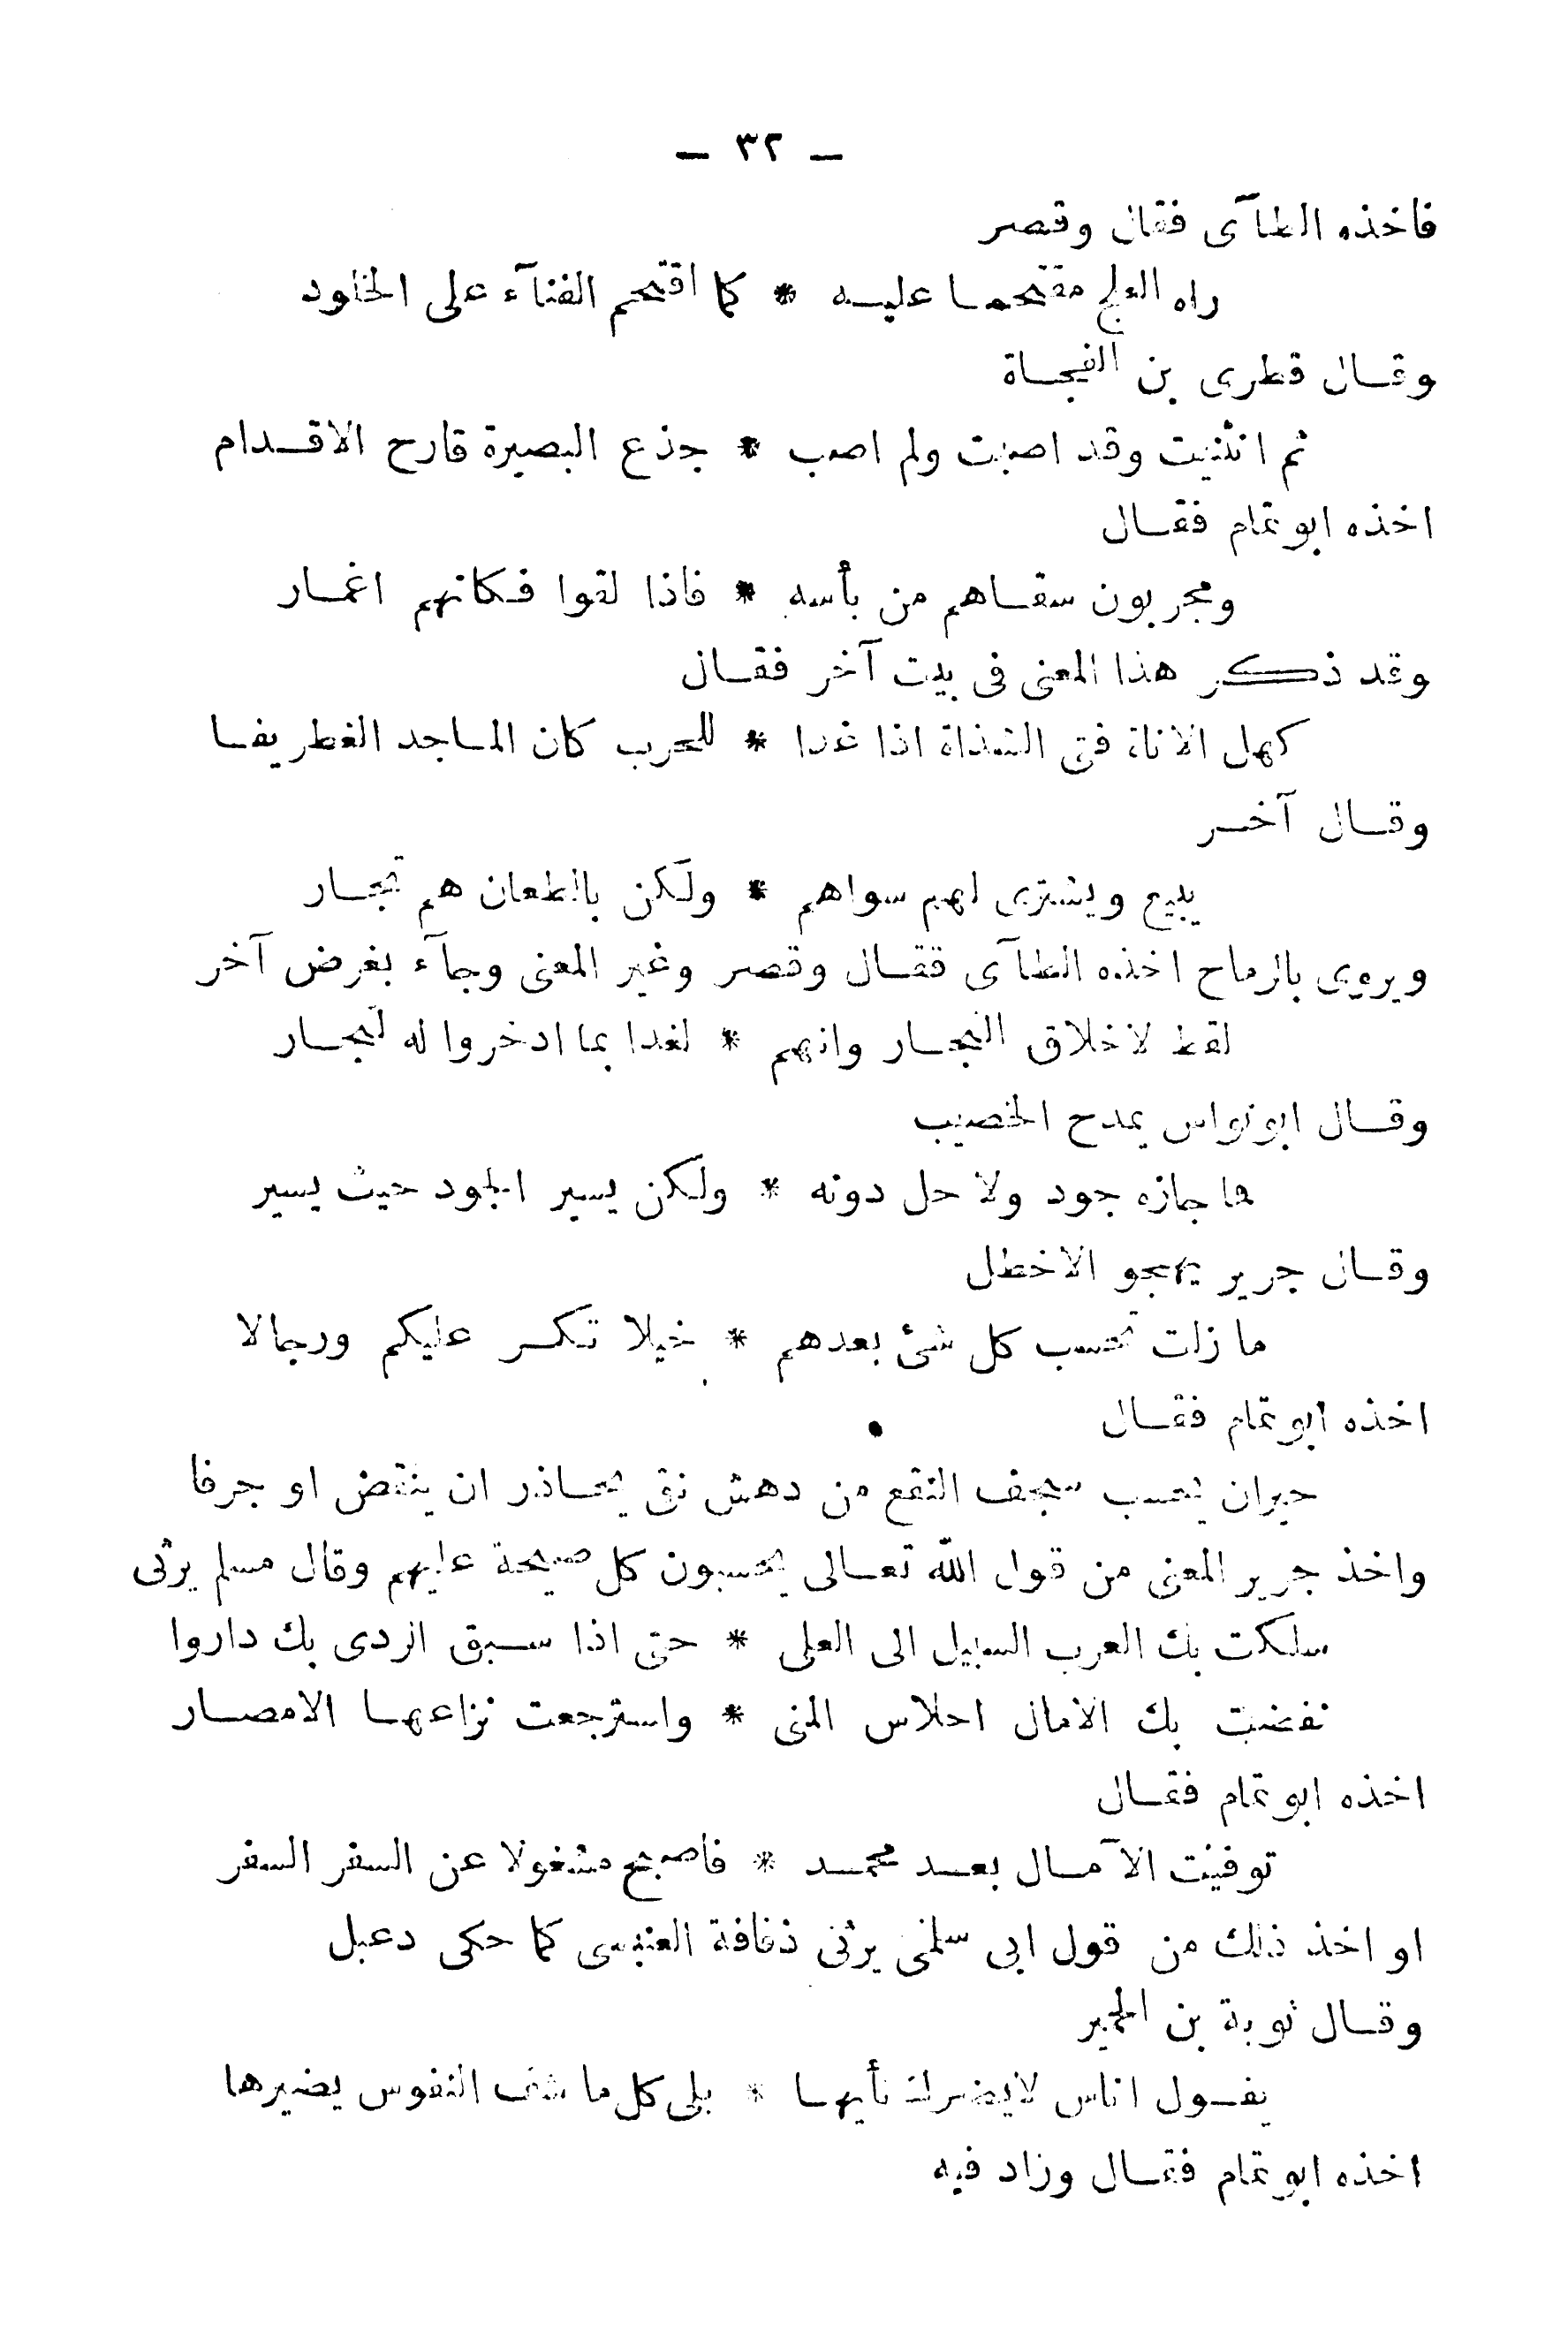 — ٣٢ —
فاخذه الطآى فقال وقصر
راه العلج مقتحما عليه * كما اقتحم الفنآء على الخلود
وقال قطرى بن الفجاة
ثم انثنيت وقد اصبت ولم اصب * جذع البصيرة قارح الاقدام
اخذه ابو تمام فقال
ومجربون سقاهم من بأسه * فاذا لقوا فكانهم اغمار
وقد ذكر هذا المعنى فى بيت آخر فقال
كهل الاناة فتى الشذاة اذا غدا * للحرب كان الماجد الغطريفا
وقال آخر
يبيع ويشترى لهم سواهم * ولكن بالطعان هم تجار
ويروى بالرماح اخذه الطآى فقال وقصر وغير المعنى وجآء بغرض آخر
لقط لاخلاق التجار وانهم * لغدا بما ادخروا له لتجار
وقال ابو نواس يمدح الخصيب
فما جازه جود ولا حل دونه * ولكن يسير الجود حيث يسير
وقال جرير يهجو الاخطل
ما زلت تحسب كل شئ بعدهم * خيلا تكر عليكم ورجالا
اخذه ابو تمام فقال
حيران يحسب سجف النقع من دهش نق يحاذر ان ينقض او جرفا
واخذ جرير المعنى من قول الله تعالى يحسبون كل صيحة عليهم وقال مسلم يرثى
سلكت بك العرب السبيل الى العلى * حتى اذا سبق الردى بك داروا
نفضت بك الامال احلاس المنى * واسترجعت نزاعها الامصار
اخذه ابو تمام فقال
توفيت الآمال بعد محمد * فاصبح مشغولا عن السفر السفر
او اخذ ذلك من قول ابى سلمى يرثى ذفافة العبسى كما حكى دعبل
وقال توبة بن الحمير
يقول اناس لايضرك نأيها * بلى كل ما شف النفوس يضيرها
اخذه ابو تمام فقال وزاد فيه